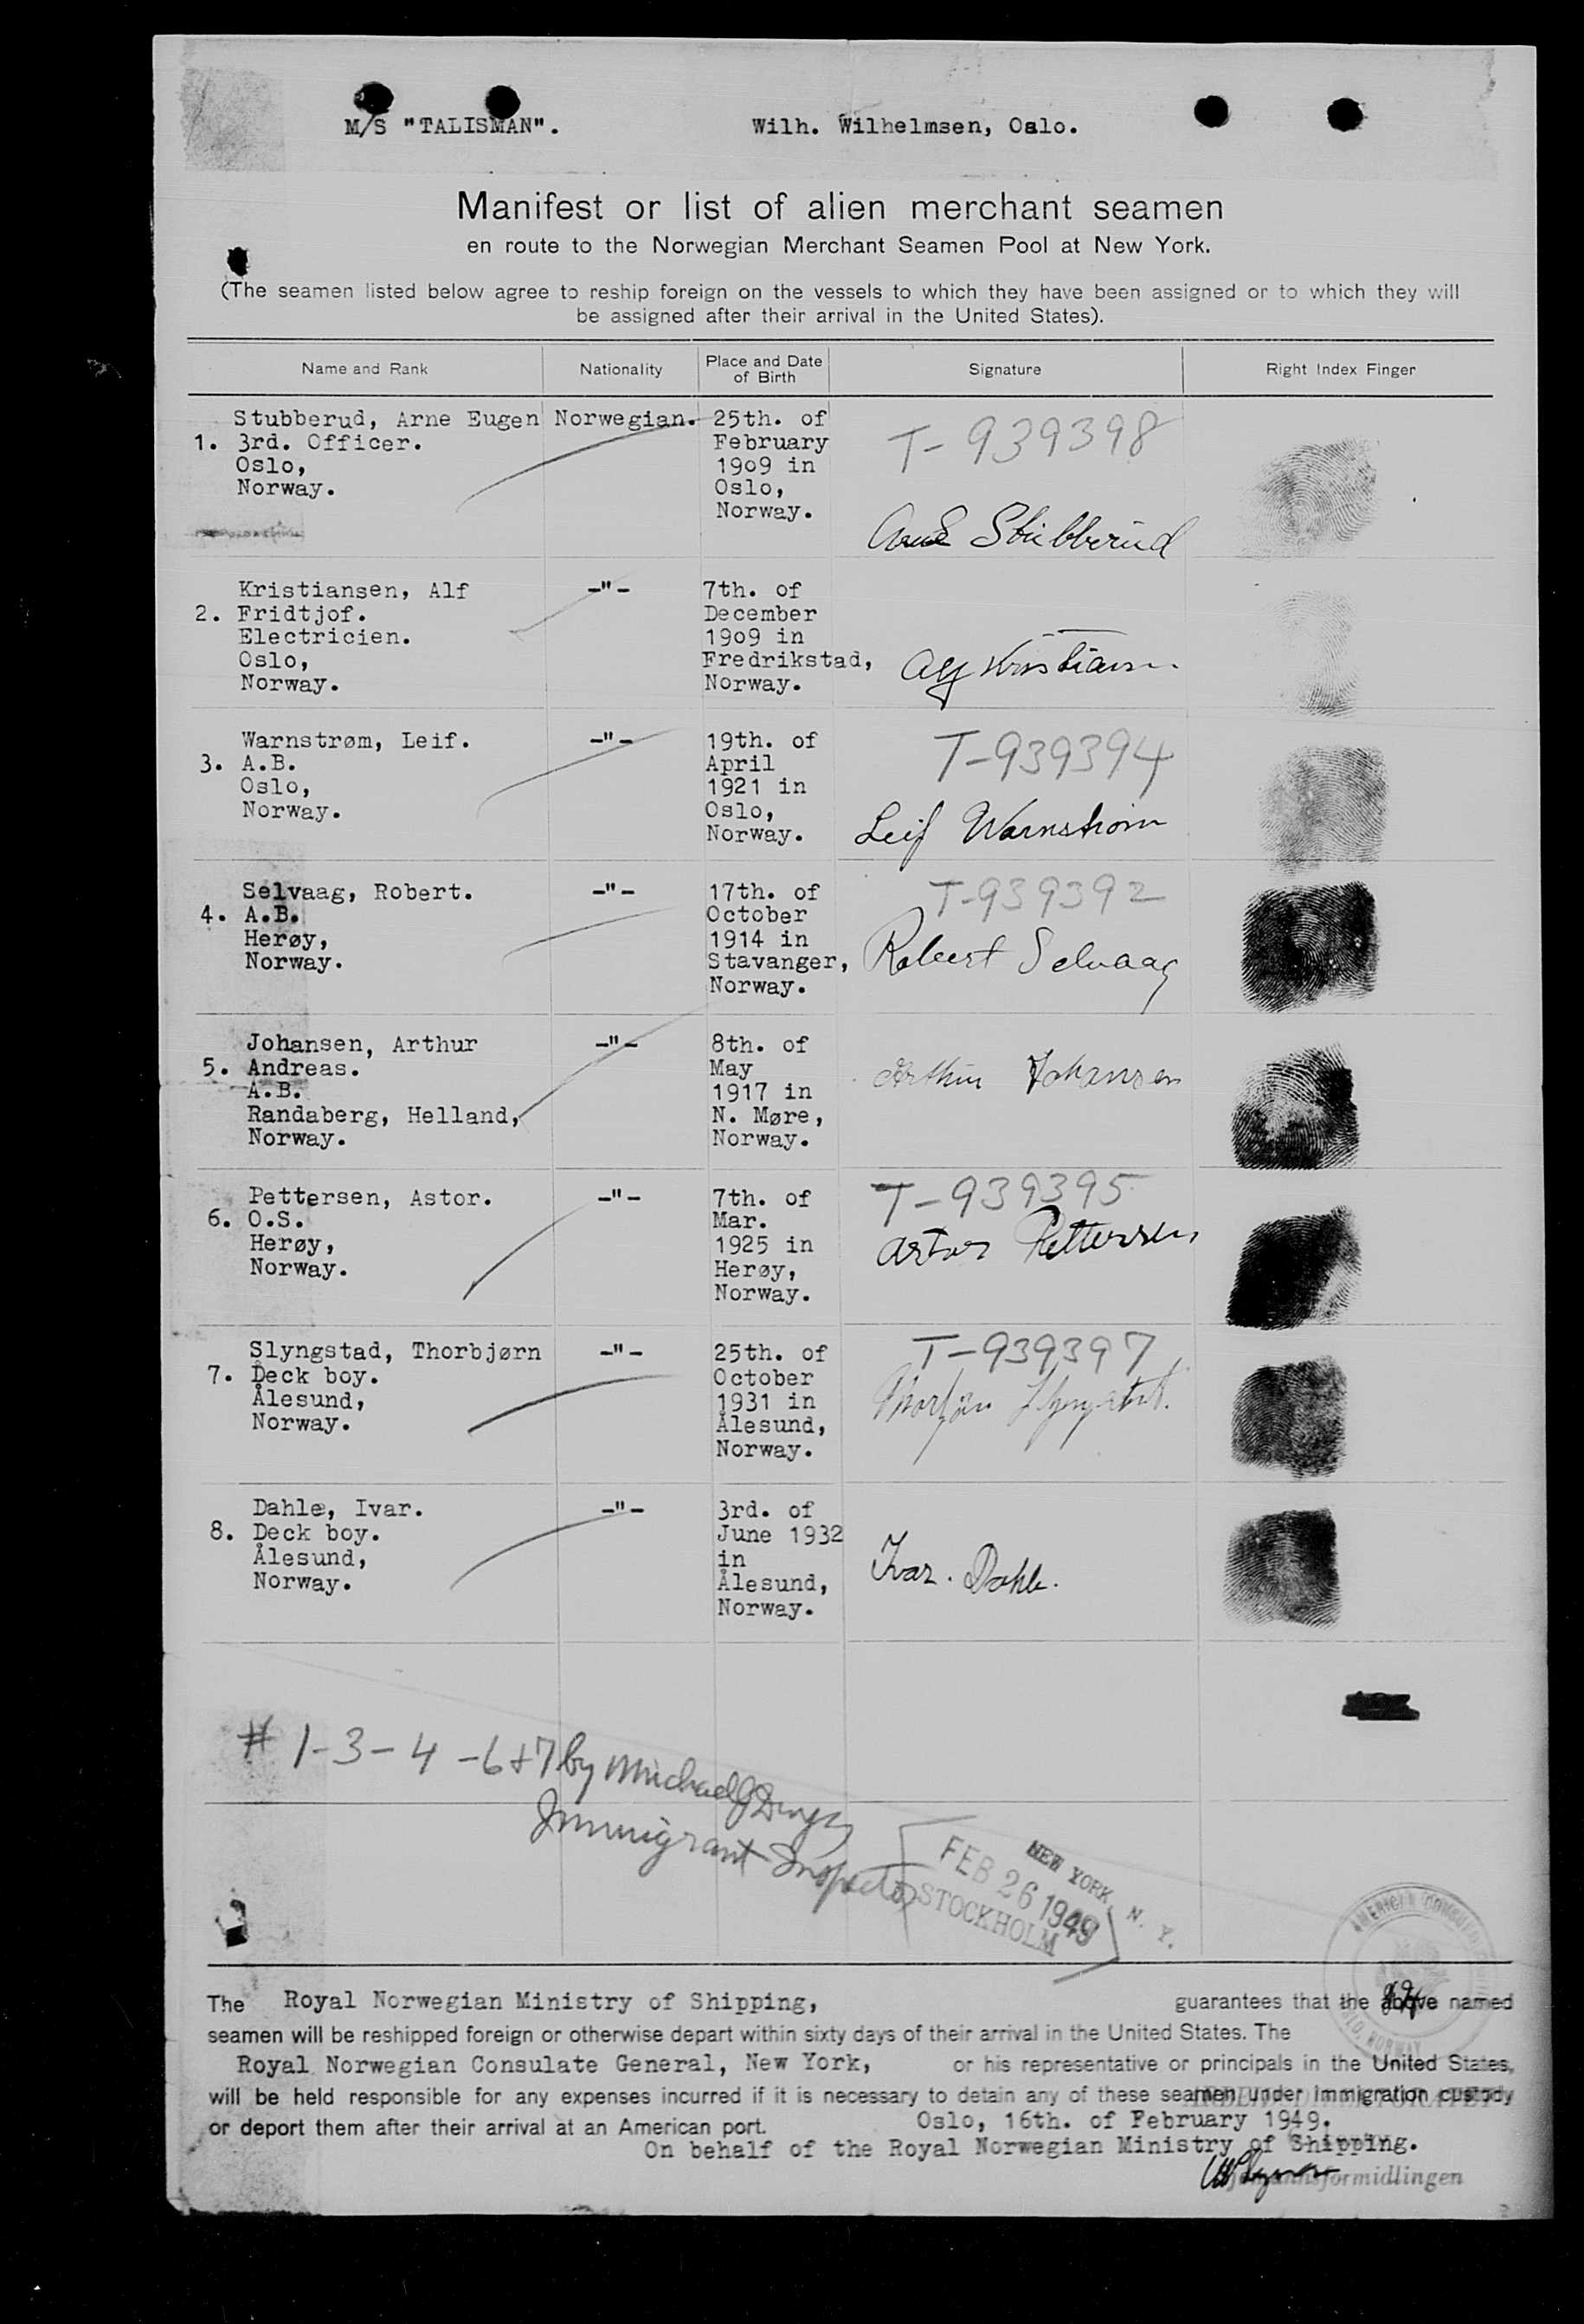 M/S "TALISMAN". Wilh. Wilhelmsen, Oslo.
Manifest or list of alien merchant seamen
en route to the Norwegian Merchant Seamen Pool at New York.
(The seamen listed below agree to reship foreign on the vessels to which they have been assigned or to which they will
be assigned after their arrival in the United States).
Name and Rank Nationality Place and Date of Birth Signature Right Index Finger
1. Stubberud, Arne Eugen
3rd. Officer.
Oslo,
Norway.
Norwegian.
25th. of
February
1909 in
Oslo,
Norway.
T-939398
Arne Stubberud
2. Kristiansen, Alf
Fridtjof.
Electricien.
Oslo,
Norway.
-"-
7th. of
December
1909 in
Fredrikstad,
Norway.
Alf Kristiansen
3. Warnstrøm, Leif.
A.B.
Oslo,
Norway.
-"-
19th. of
April
1921 in
Oslo,
Norway.
T-939394
Leif Warnstrøm
4. Selvaag, Robert.
A.B.
Herøy,
Norway.
-"-
17th. of
October
1914 in
Stavanger,
Norway.
T-939392
Robert Selvaag
5. Johansen, Arthur
Andreas.
A.B.
Randaberg, Helland,
Norway.
-"-
8th. of
May
1917 in
N. Møre,
Norway.
Arthur Johansen
6. Pettersen, Astor.
O.S.
Herøy,
Norway.
-"-
7th. of
Mar.
1925 in
Herøy,
Norway.
T-939395
Astor Pettersen
7. Slyngstad, Thorbjørn
Deck boy.
Ålesund,
Norway.
-"-
25th. of
October
1931 in
Ålesund,
Norway.
T-939397
8. Dahle, Ivar.
Deck boy.
Ålesund,
Norway.
-"-
3rd. of
June 1932
in
Ålesund,
Norway.
Ivar. Dahle.
# 1-3-4-6+7 by Michael J
Immigrant Inspector
NEW YORK, N. Y.
FEB 26 1949
STOCKHOLM
The Royal Norwegian Ministry of Shipping, guarantees that the above named
seamen will be reshipped foreign or otherwise depart within sixty days of their arrival in the United States. The
Royal Norwegian Consulate General, New York, or his representative or principals in the United States,
will be held responsible for any expenses incurred if it is necessary to detain any of these seamen under immigration custody
or deport them after their arrival at an American port.
Oslo, 16th. of February 1949.
On behalf of the Royal Norwegian Ministry of Shipping.